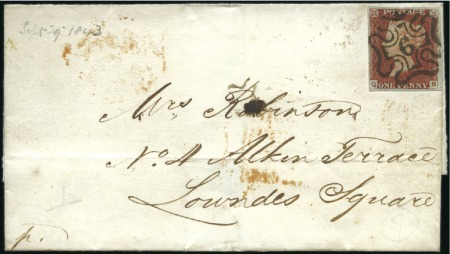 Sept 19 1843
POSTAGE
ONE PENNY
Mrs Robinson
No 4 Alkin Terrace
Lowndes Square
p.